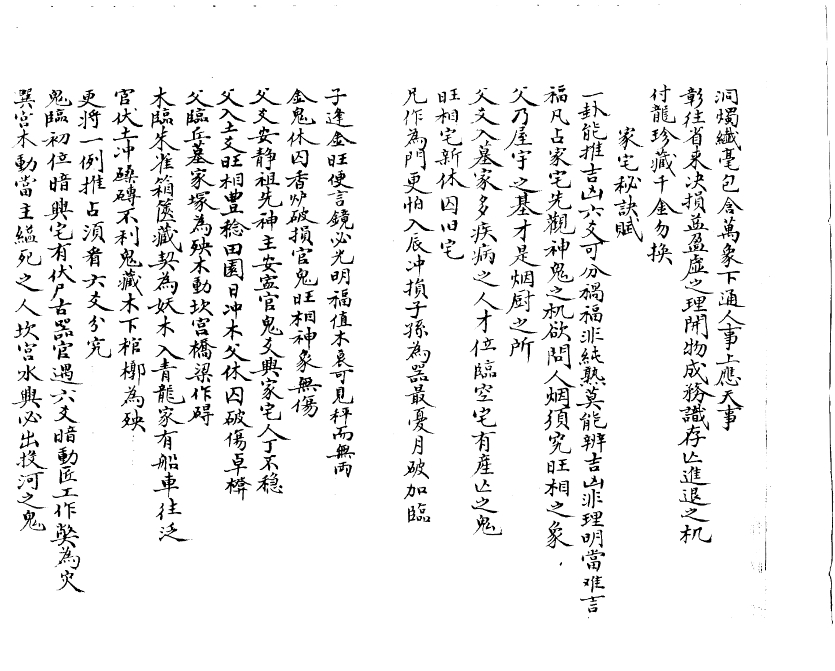 洞燭纖毫包含萬象下通人事上應天事
彰往省來决損益盈虛之理開物成務識存亾進退之机
付龍珍藏千金勿換
家宅秘訣賦
一卦能推吉凶六爻可分禍福非純熟莫能辨吉凶非理明當难言
福凡占家宅先觀神鬼之机欲問人烟須究旺相之象
父乃屋宇之基才是烟厨之所
父爻入墓家多疾病之人才位臨空宅有産亾之鬼
旺相宅新休囚旧宅
凡作為門更怕入辰冲損子孫為噐最憂月破加臨
子逢金旺便言鏡必光明福值木衰可見秤而無両
金鬼休囚香炉破損官鬼旺相神象無傷
父爻安静祖先神主安寍官鬼爻興家宅人丁不稳
父入土爻旺相豊稔田園日冲木父休囚破傷卓櫈
父臨丘墓家塚為殃木動坎宮橋梁作碍
木臨朱雀箱篋藏契為妖木入青龍家有船車往泛
官伏土冲磉磚不利鬼藏木下棺槨為殃
更将一例推占須看六爻分究
鬼臨初位暗興宅有伏尸古噐官遇六爻暗動匠工作獘為灾
巽宮木動當主縊死之人坎宮水興必出投河之鬼